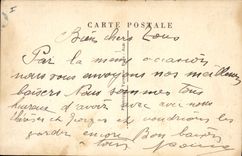 CARTE POSTALE
Bien chers Tous
Par la même occasion
nous vous envoyons nos meilleurs
baisers Nous sommes tous
heureux d'avoir avec nous
et Georges et voudrions les
garder encore Bon baisers
à tous